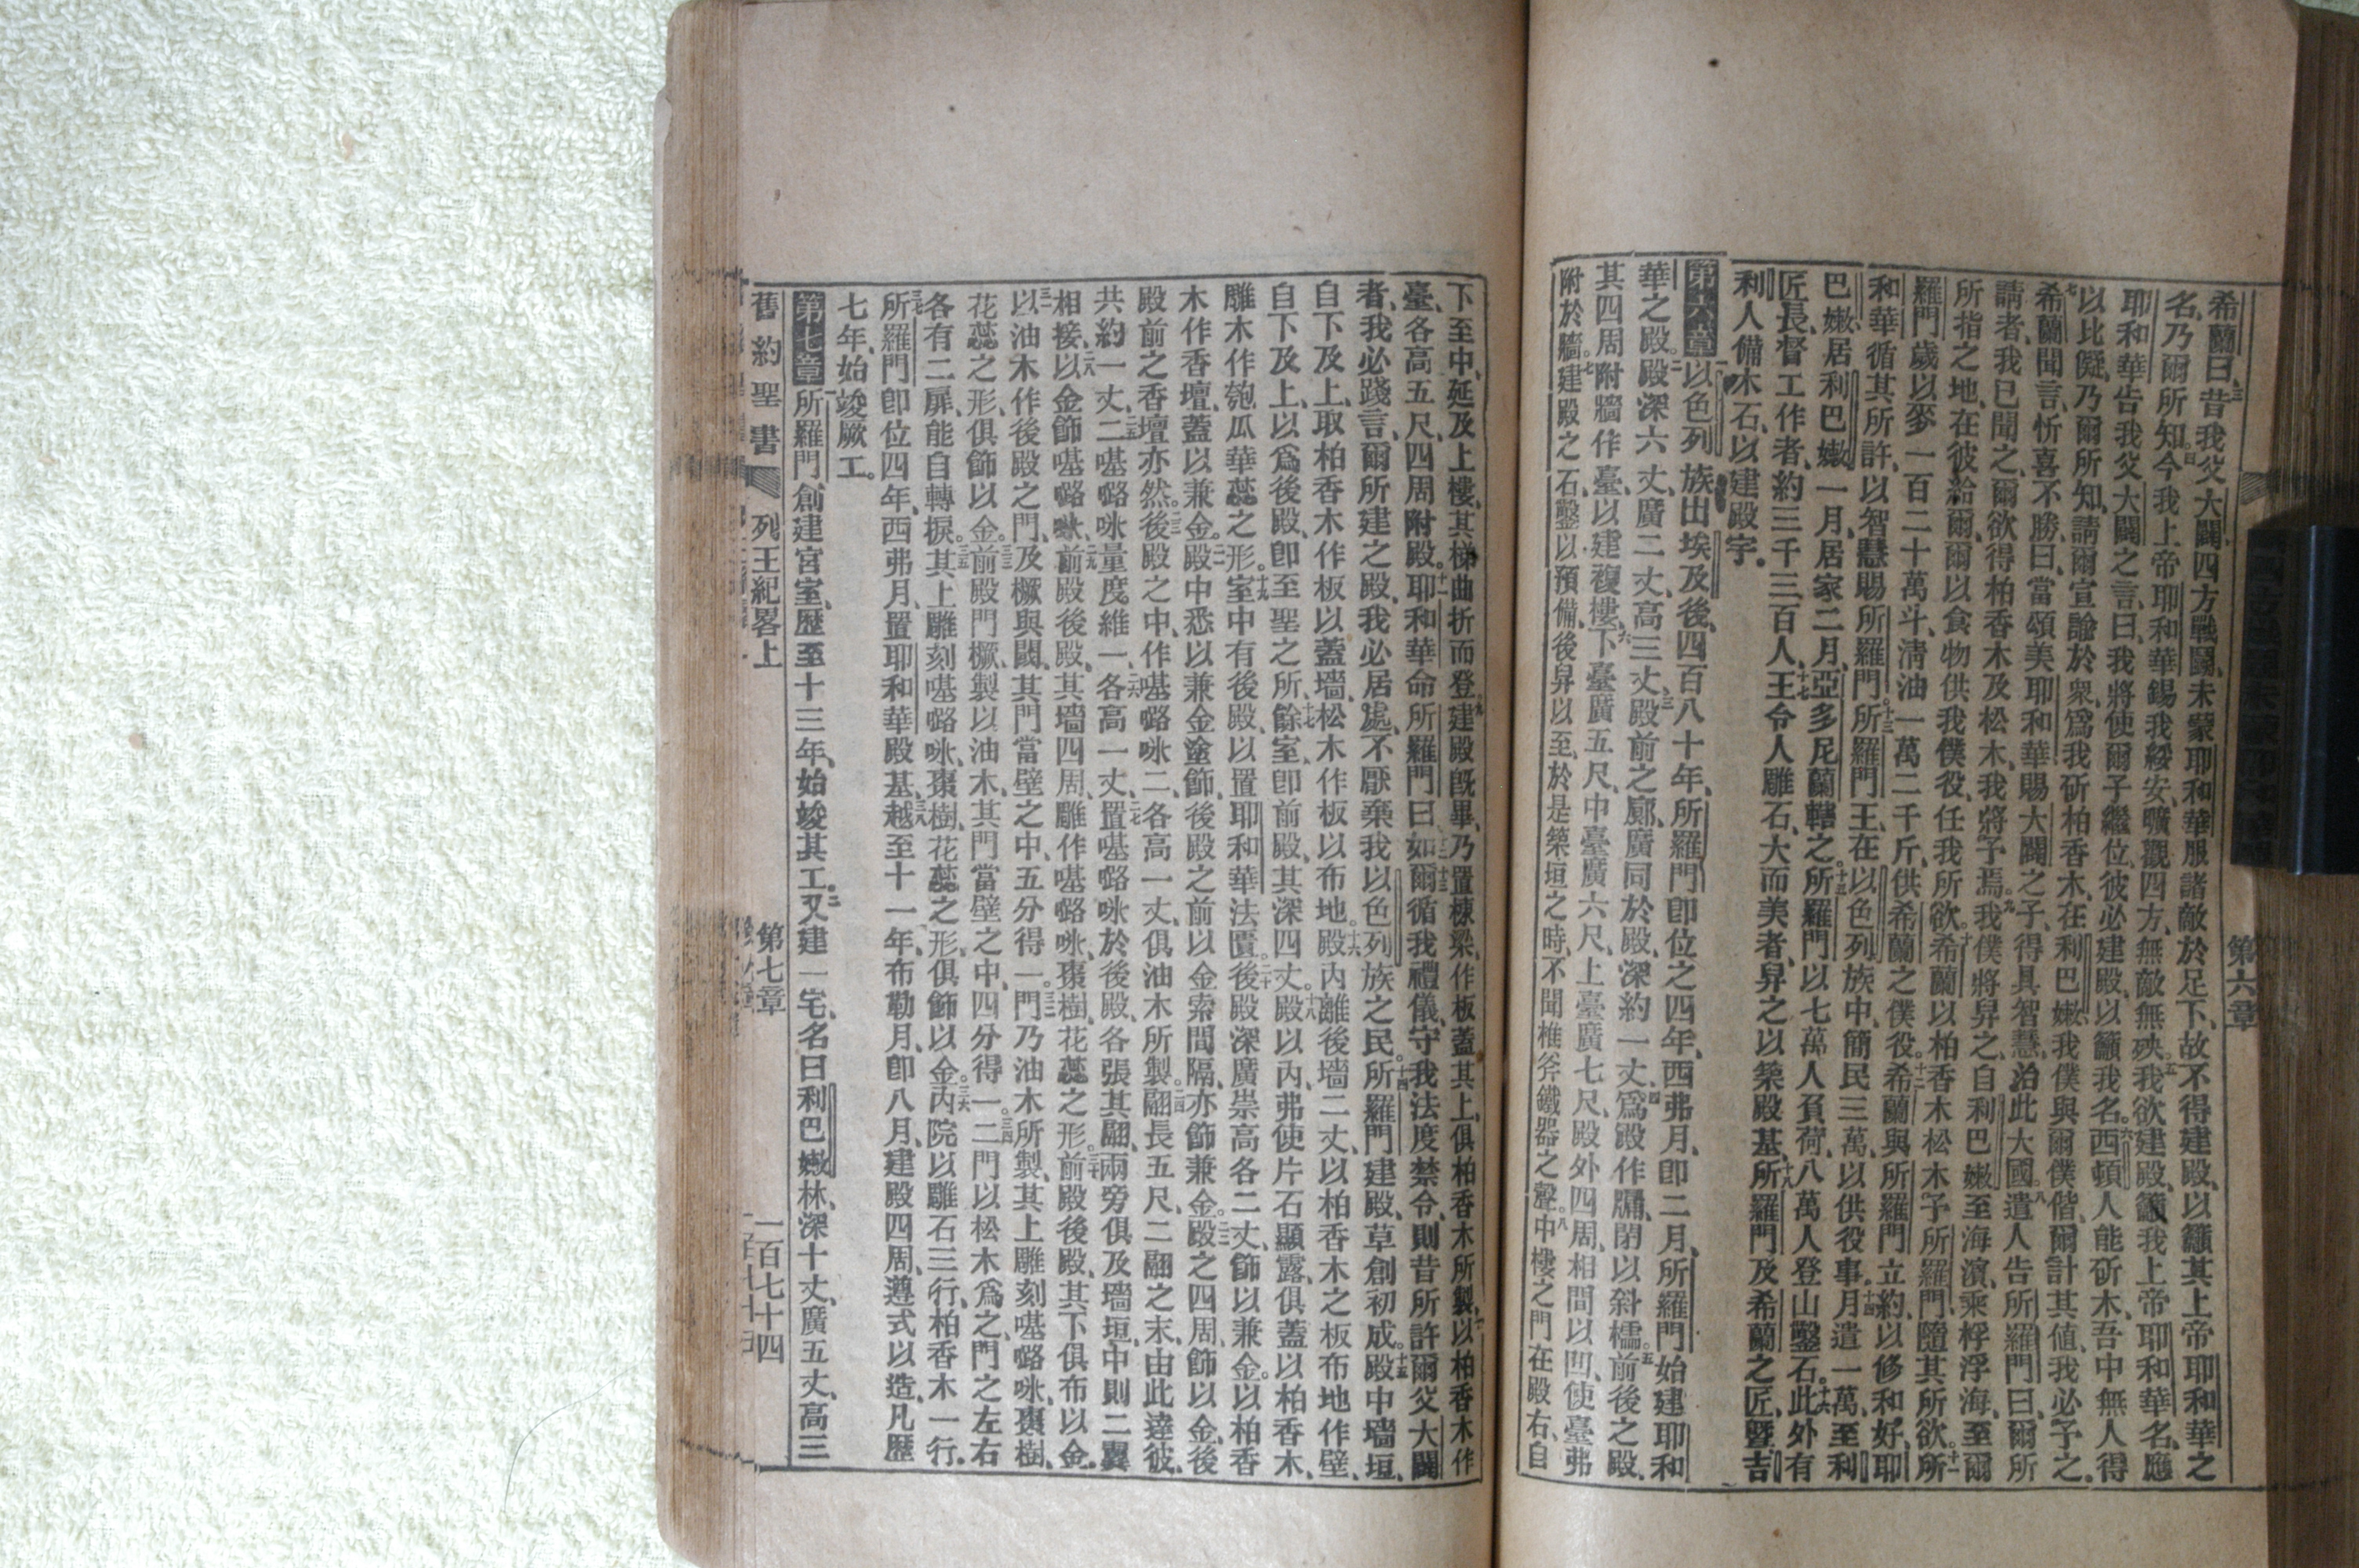 希蘭曰、三昔我父大闢、四方戰鬭、未蒙耶和華服諸敵於足下、故不得建殿、以籲其上帝耶和華之
名、乃爾所知。四今我上帝耶和華、錫我綏安、曠觀四方、無敵無殃。五我欲建殿、籲我上帝耶和華名、應
耶和華告我父大闢之言、曰、我將使爾子繼位、彼必建殿、以籲我名。六西頓人能斫木、吾中無人得
以比儗、乃爾所知、請爾宣諭於衆、爲我斫柏香木、在利巴嫩、我僕與爾僕偕、爾計其值、我必予之。
七希蘭聞言、忻喜不勝、曰、當頌美耶和華、賜大闢之子、得具智慧、治此大國。八遣人告所羅門曰、爾所
請者、我已聞之、爾欲得柏香木及松木、我將予焉。九我僕將舁之、自利巴嫩至海濱、乘桴浮海、至爾
所指之地、在彼給爾、爾以食物供我僕役、任我所欲。十希蘭以柏香木松木予所羅門、隨其所欲。十一所
羅門歲以麥一百二十萬斗、清油一萬二千斤、供希蘭之僕役。十二希蘭與所羅門立約、以修和好、耶
和華循其所許、以智慧賜所羅門。十三所羅門王、在以色列族中、簡民三萬、以供役事。十四月遣一萬、至利
巴嫩、居利巴嫩一月、居家二月、亞多尼蘭轄之。十五所羅門以七萬人負荷、八萬人登山鑿石。十六此外有
匠長、督工作者、約三千三百人、十七王令人雕石、大而美者、舁之以築殿基、十八所羅門及希蘭之匠、曁吉
利人備木石、以建殿宇。
第六章 一以色列族出埃及後、四百八十年、所羅門卽位之四年、西弗月、卽二月、所羅門始建耶和
華之殿。二殿深六丈、廣二丈、高三丈、三殿前之廊、廣同於殿、深約一丈、四爲殿作牖、閉以斜櫺。五前後之殿、
其四周附牆作臺、以建複樓、六下臺廣五尺、中臺廣六尺、上臺廣七尺、殿外四周、相間以凹、使臺弗
附於牆。七建殿之石、鑿以預備、後舁以至、於是築垣之時、不聞椎斧鐵器之聲。八中樓之門在殿右、自
下至中、延及上樓、其梯曲折而登。九建殿旣畢、乃置棟梁、作板蓋其上、俱柏香木所製、十以柏香木作
臺、各高五尺、四周附殿。十一耶和華命所羅門曰、十二如爾循我禮儀、守我法度禁令、則昔所許爾父大闢
者、我必踐言、十三爾所建之殿、我必居處、不厭棄我以色列族之民。十四所羅門建殿、草創初成。十五殿中墻垣、
自下及上、取柏香木作板以蓋墻、松木作板以布地。十六殿內離後墻二丈、以柏香木之板布地作壁、
自下及上、以爲後殿、卽至聖之所、十七餘室、卽前殿、其深四丈。十八殿以內、弗使片石顯露、俱蓋以柏香木、
雕木作匏瓜華蕊之形。十九室中有後殿、以置耶和華法匱。二十後殿深廣崇高各二丈、飾以兼金。以柏香
木作香壇、蓋以兼金。二一殿中悉以兼金塗飾、後殿之前、以金索間隔、亦飾兼金。二二殿之四周、飾以金、後
殿前之香壇亦然。二三後殿之中、作𠼻㘔咏二、各高一丈、俱油木所製。二四翮長五尺、二翮之末、由此達彼、
共約一丈、二五二𠼻㘔咏量度維一、二六各高一丈、二七置𠼻㘔咏於後殿、各張其翮、兩旁俱及墻垣、中則二翼
相接、二八以金飾𠼻㘔咏。二九前殿後殿、其墻四周、雕作𠼻㘔咏、棗樹、花蕊之形。三十前殿後殿、其下俱布以金。
三一以油木作後殿之門、及橛與闑、其門當壁之中、五分得一。三二門乃油木所製、其上雕刻𠼻㘔咏、棗樹、
花蕊之形、俱飾以金。三三前殿門橛、製以油木、其門當壁之中、四分得一。三四二門以松木爲之、門之左右
各有二扉、能自轉捩。三五其上雕刻𠼻㘔咏、棗樹、花蕊之形、俱飾以金。三六內院以雕石三行、柏香木一行。
三七所羅門卽位四年、西弗月、置耶和華殿基、三八越至十一年、布勒月、卽八月、建殿四周、遵式以造、凡歷
七年、始竣厥工。
第七章 一所羅門創建宮室、歷至十三年、始竣其工。二又建一宅、名曰利巴嫩林、深十丈、廣五丈、高三
舊約聖書 列王紀畧上 第七章 一百七十四
第六章